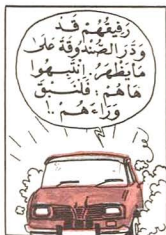 رَفِيقُهُمْ قَدْ
وَذَرَ الصُّنْدُوقَةَ عَلَى
مَا يَظْهَرُ، إِنْتَبِهُوا
هَاهُمْ: فَلْنَبْقَ
وَرَاءَهُمْ..!